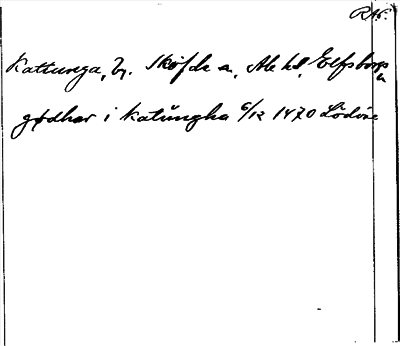 RAp.
Kattunga, by. Sköfde s., Ale hd, Elfsborgs
n
godhar i katüngha 6/12 1470 Lödöse